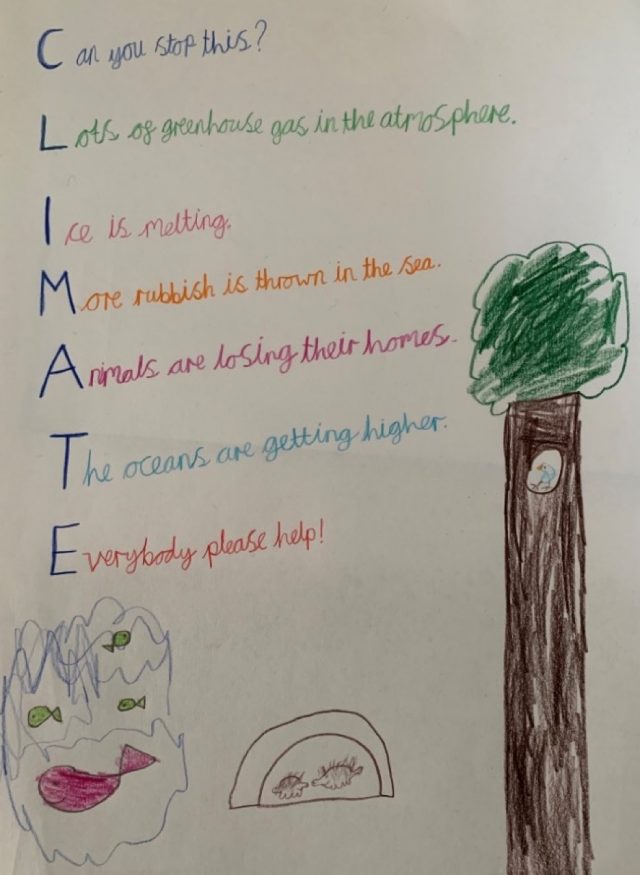 Can you stop this?
Lots of greenhouse gas in the atmosphere.
Ice is melting.
More rubbish is thrown in the sea.
Animals are losing their homes.
The oceans are getting higher.
Everybody please help!